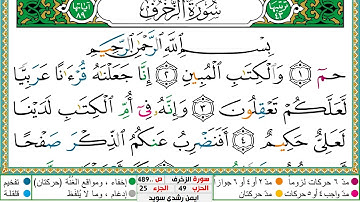 ترتيبها ٤٣ سُورَةُ الزُّخْرُفِ آياتها ٨٩
بِسْمِ ٱللَّهِ ٱلرَّحْمَٰنِ ٱلرَّحِيمِ
حمٓ ١ وَٱلْكِتَٰبِ ٱلْمُبِينِ ٢ إِنَّا جَعَلْنَٰهُ قُرْءَٰنًا عَرَبِيًّا
لَّعَلَّكُمْ تَعْقِلُونَ ٣ وَإِنَّهُۥ فِىٓ أُمِّ ٱلْكِتَٰبِ لَدَيْنَا
لَعَلِىٌّ حَكِيمٌ ٤ أَفَنَضْرِبُ عَنكُمُ ٱلذِّكْرَ صَفْحًا
مدّ ٦ حركات لزوماً مدّ ٢ أو ٤ أو ٦ جوازاً سورة الزخرف ص ..489 إخفاء، ومواقع الغنّة (حركتان) تفخيم
مدّ واجب ٤ أو ٥ حركات الحزب 49 الجزء 25 إدغام، وما لا يُلفظ قلقلة
ايمن رشدي سويد